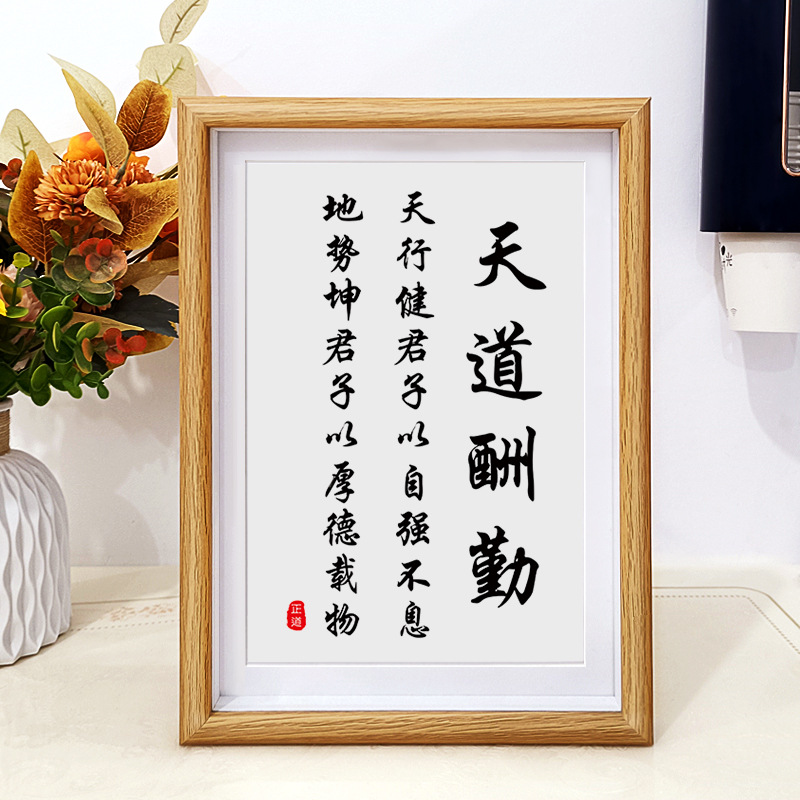 天道酬勤
天行健君子以自强不息
地势坤君子以厚德载物
正道
光